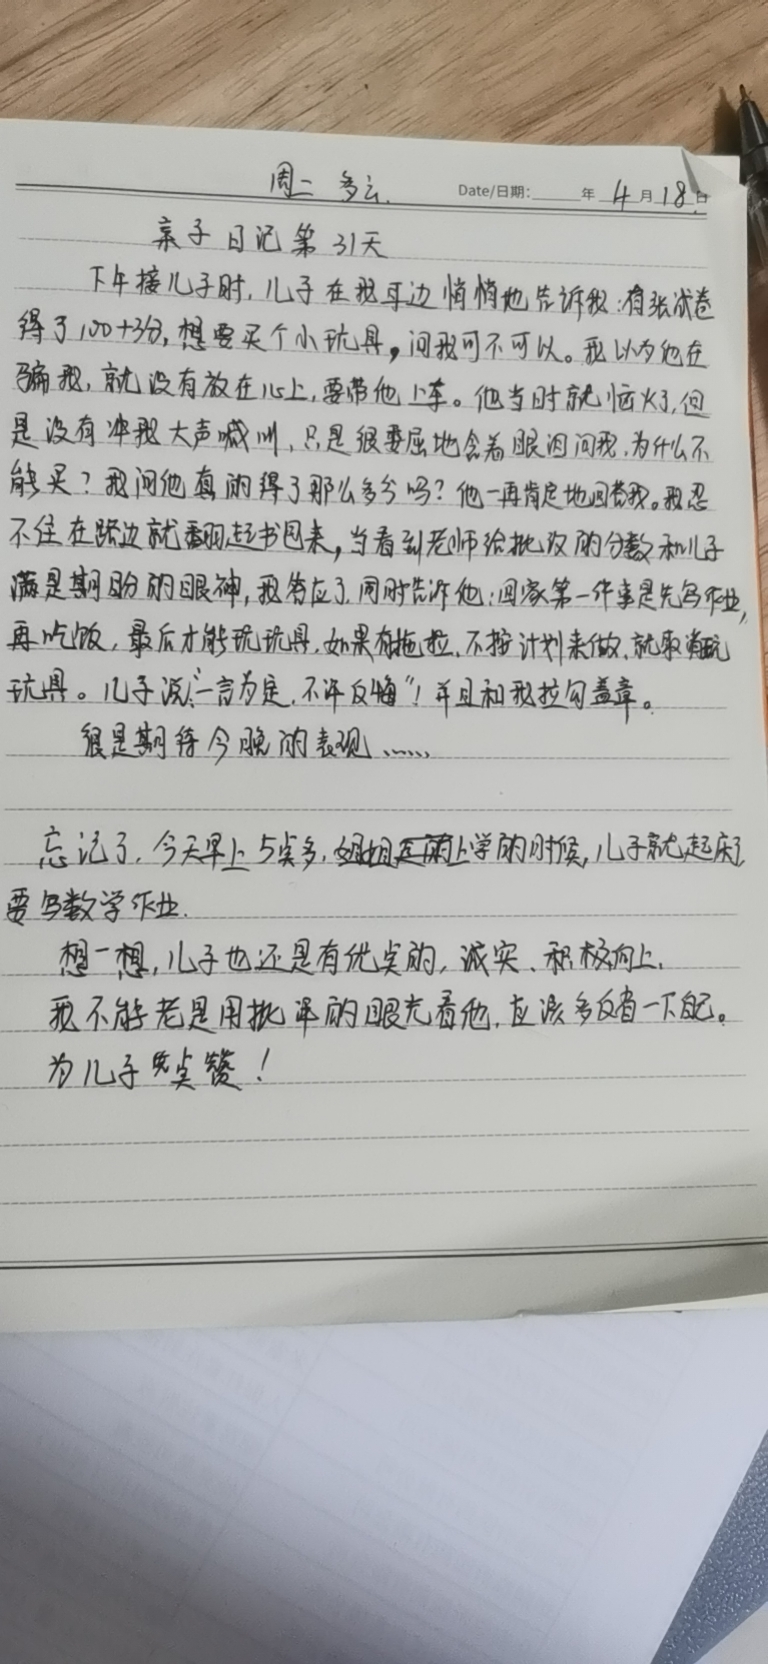 周二 多云. Date/日期:_____年 4 月 18 日
亲子日记第31天
下午接儿子时,儿子在我耳边悄悄地告诉我:有张试卷
得了100+3分,想要买个小玩具,问我可不可以。我以为他在
骗我,就没有放在心上,要带他上车。他当时就恼火了,但
是没有冲我大声喊叫,只是很委屈地含着眼泪问我,为什么不
能买?我问他真的得了那么多分吗?他一再肯定地回答我。我忍
不住在路边就翻起书包来,当看到老师给批改的分数和儿子
满是期盼的眼神,我答应了,同时告诉他:回家第一件事是先写作业,
再吃饭,最后才能玩玩具,如果有拖拉,不按计划来做,就取消玩
玩具。儿子说:“一言为定,不许反悔”!并且和我拉勾盖章。
很是期待今晚的表现……
忘记了,今天早上5点多,姐姐上学的时候,儿子就起床了,
要写数学作业.
想一想,儿子也还是有优点的,诚实、积极向上.
我不能老是用批评的眼光看他,应该多反省一下自己。
为儿子点赞!